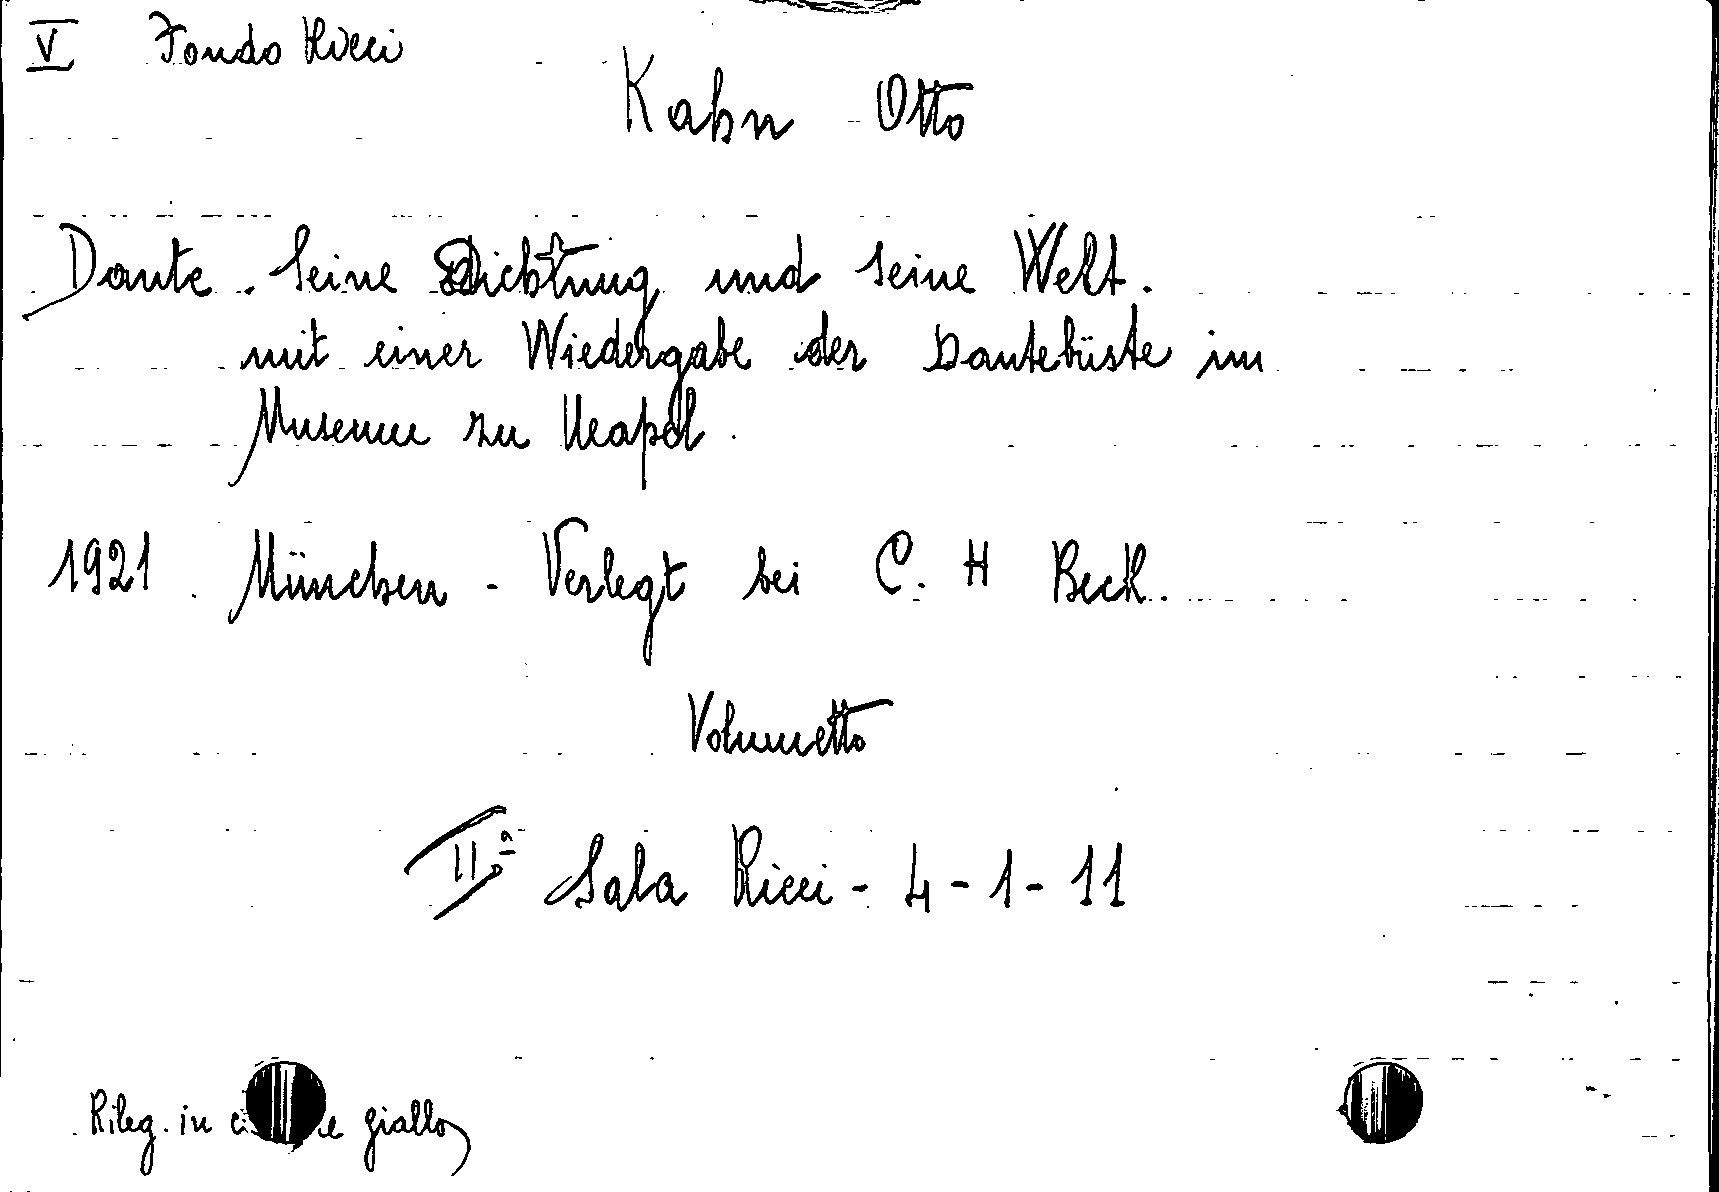 V Fondo Ricci
Kahn Otto
Dante. Seine Dichtung und seine Welt.
mit einer Wiedergabe der Dantebüste im
Museum zu Neapel.
1921. München - Verlegt bei C. H Beck.
Volumetto
IIª Sala Ricci - 4 - 1 - 11
Rileg. in giallo